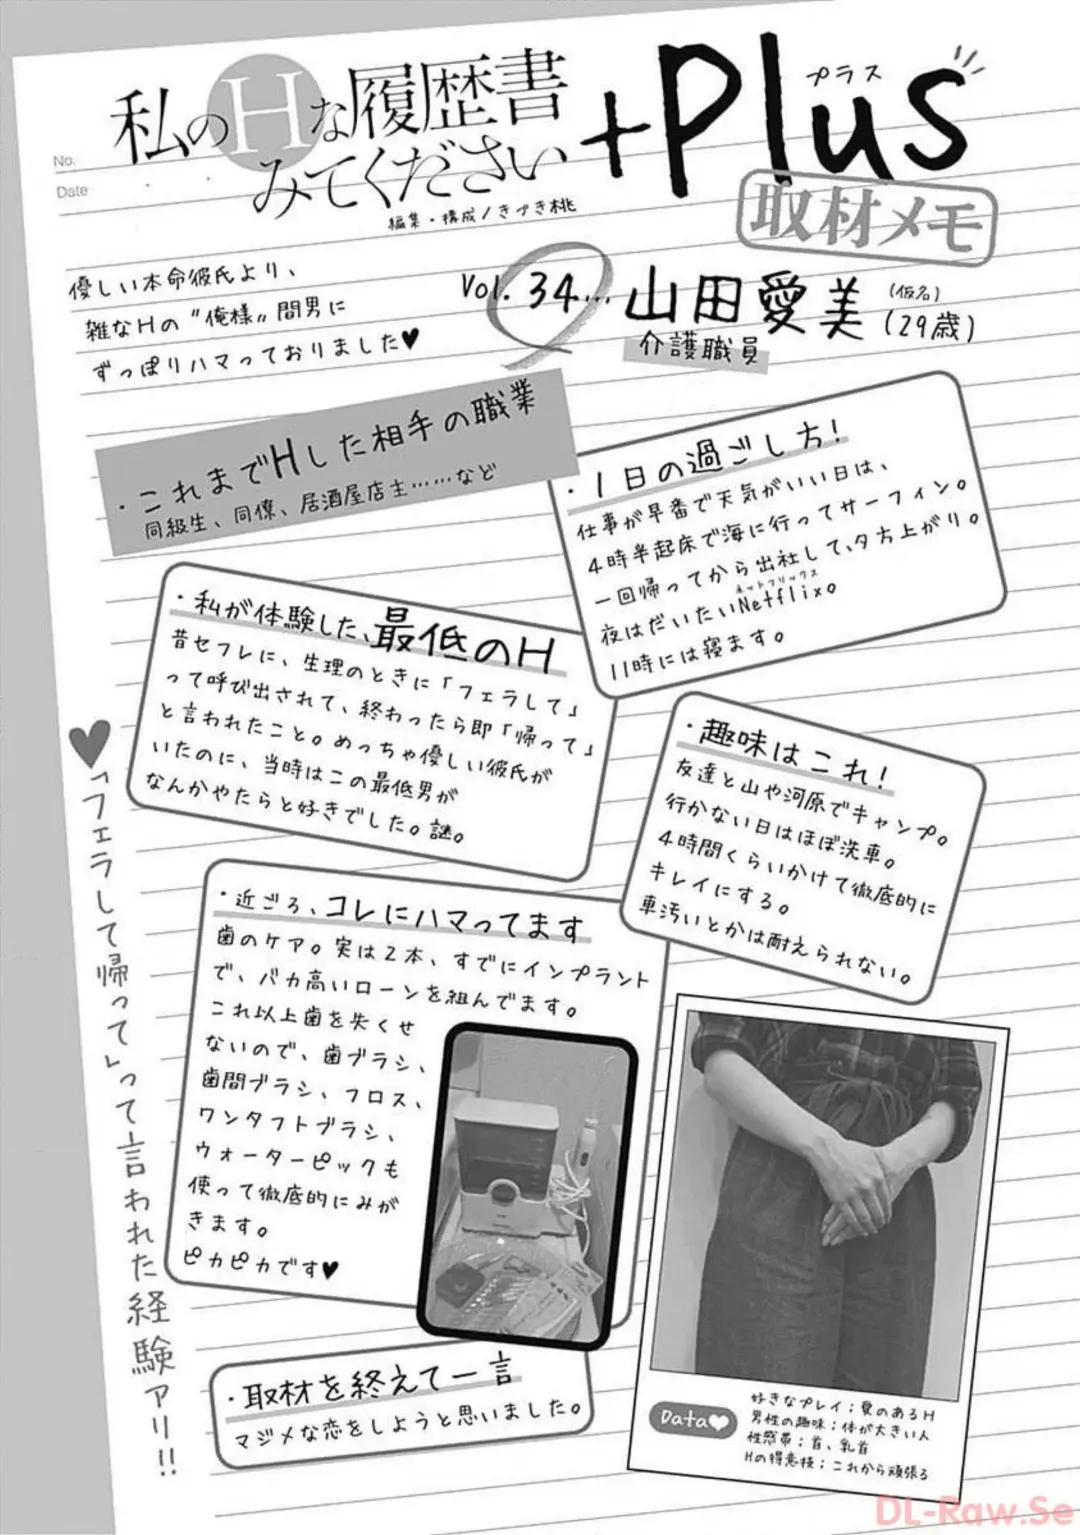 No.
Date
私のHな履歴書
みてください
+Plus
プラス
編集・構成/きづき桃
取材メモ
優しい本命彼氏より、
雑なHの〝俺様〟間男に
ずっぽりハマっておりました♥
Vol.34...
山田愛美
(仮名)
(29歳)
介護職員
・これまでHした相手の職業
同級生、同僚、居酒屋店主……など
・1日の過ごし方!
仕事が早番で天気がいい日は、
4時半起床で海に行ってサーフィン。
一回帰ってから出社して、夕方上がり。
ネットフリックス
夜はだいたいNetflix。
11時には寝ます。
・私が体験した、最低のH
昔セフレに、生理のときに「フェラして」
って呼び出されて、終わったら即「帰って」
と言われたこと。めっちゃ優しい彼氏が
いたのに、当時はこの最低男が
なんかやたらと好きでした。謎。
・趣味はこれ!
友達と山や河原でキャンプ。
行かない日はほぼ洗車。
4時間くらいかけて徹底的に
キレイにする。
車汚いとかは耐えられない。
♥「フェラして帰って」って言われた経験アリ!!
・近ごろ、コレにハマってます
歯のケア。実は2本、すでにインプラント
で、バカ高いローンを組んでます。
これ以上歯を失くせ
ないので、歯ブラシ、
歯間ブラシ、フロス、
ワンタフトブラシ、
ウォーターピックも
使って徹底的にみが
きます。
ピカピカです♥
・取材を終えて一言
マジメな恋をしようと思いました。
Data♥
好きなプレイ;愛のあるH
男性の趣味;体が大きい人
性感帯;首、乳首
Hの得意技;これから頑張る
DL-Raw.Se